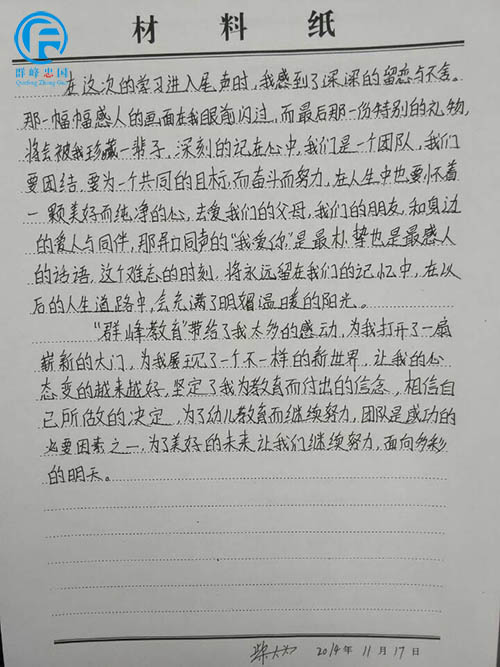 群峰忠国
Qunfeng Zhong Guo
材料纸
在这次的学习进入尾声时,我感到了深深的留恋与不舍。
那一幅幅感人的画面在我眼前闪过,而最后那一份特别的礼物,
将会被我珍藏一辈子,深刻的记在心中,我们是一个团队,我们
要团结,要为一个共同的目标,而奋斗而努力,在人生中也要怀着
一颗美好而纯净的心,去爱我们的父母,我们的朋友,和身边
的爱人与同伴,那异口同声的“我爱你”是最朴挚也是最感人
的话语,这个难忘的时刻,将永远留在我们的记忆中,在以
后的人生道路中,会充满了明媚温暖的阳光。
“群峰教育”带给了我太多的感动,为我打开了一扇
崭新的大门,为我展现了一个不一样的新世界,让我的心
态变的越来越好,坚定了我为教育而付出的信念,相信自
己所做的决定,为了幼儿教育而继续努力,团队是成功的
必要因素之一,为了美好的未来让我们继续努力,面向多彩
的明天。
2019年11月17日